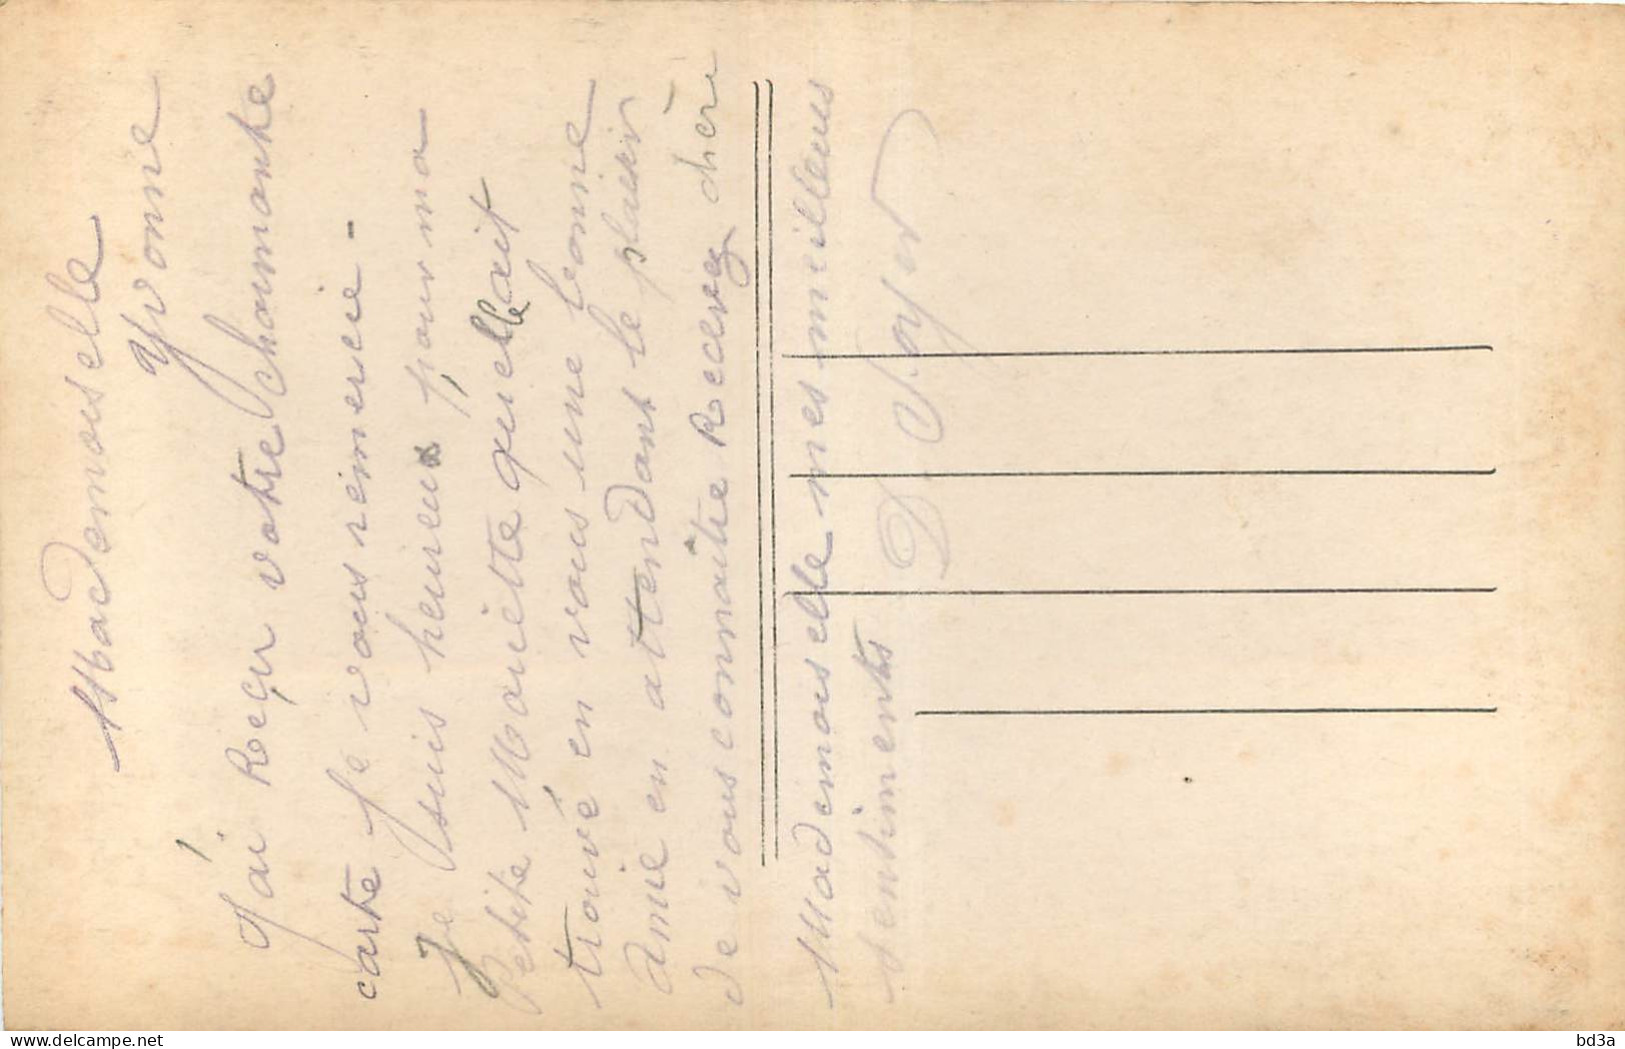 Mademoiselle
Yvonne
J'ai Reçu votre Chaumante
carte Je vous rémercie -
Je suis heureux pour ma
Petite Mariette qu'elle ait
trouvé en vous une bonne
amie en attendant le plaisir
de vous connaître Recevez chère
Mademoiselle mes meilleurs
sentiments
D.
delcampe.net
bd3a